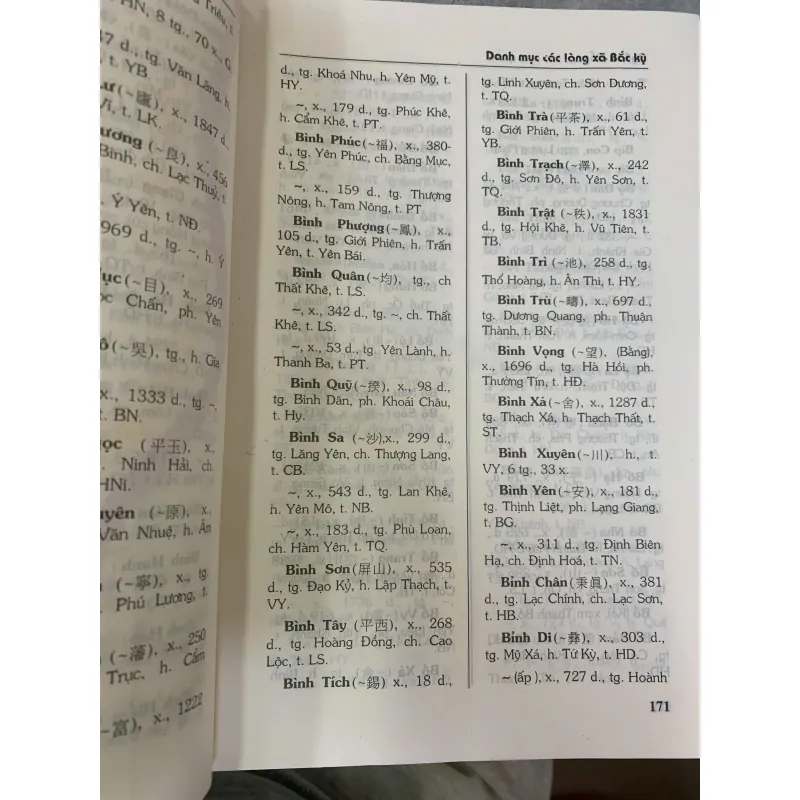 Triều, t.
HN, 8 tg., 70 x., G.
d., tg. Văn Lãng, h.
YB.
ư (~廬), x., 1847 d.,
Vì, t. LK.
ương (~良), x., 456
Bình, ch. Lạc Thuỷ, t.
Ý Yên, t. NĐ.
969 d., tg. ~, h. Ý
ục (~目), x., 269
ọc Chấn, ph. Yên
ô (~吳), tg., h. Gia
x., 1333 d., tg. ~,
t. BN.
ọc (平玉), x.,
Ninh Hải, ch.
HNi.
uyên (~原), x.,
Văn Nhuệ, h. Ân
(~寧), x., tg.
Phú Lương, t.
(~藩), x., 250
Trục, h. Cẩm
(~富), x., 1222
Danh mục các làng xã Bắc kỳ
d., tg. Khoá Nhu, h. Yên Mỹ, t.
HY.
~, x., 179 d., tg. Phúc Khê,
h. Cẩm Khê, t. PT.
Bình Phúc (~福), x., 380
d., tg. Yên Phúc, ch. Bằng Mục,
t. LS.
~, x., 159 d., tg. Thượng
Nông, h. Tam Nông, t. PT
Bình Phượng (~鳳), x.,
105 d., tg. Giới Phiên, h. Trấn
Yên, t. Yên Bái.
Bình Quân (~均), tg., ch
Thất Khê, t. LS.
~, x., 342 d., tg. ~, ch. Thất
Khê, t. LS.
~, x., 53 d., tg. Yên Lành, h.
Thanh Ba, t. PT.
Bình Quỹ (~揆), x., 98 d.,
tg. Bình Dân, ph. Khoái Châu,
t. Hy.
Bình Sa (~沙),x., 299 d.,
tg. Lăng Yên, ch. Thượng Lang,
t. CB.
~, x., 543 d., tg. Lan Khê,
h. Yên Mô, t. NB.
~, x., 183 d., tg. Phù Loan,
ch. Hàm Yên, t. TQ.
Bình Sơn (屏山), x., 535
d., tg. Đạo Kỷ, h. Lập Thạch, t.
VY.
Bình Tây (平西), x., 268
d., tg. Hoàng Đồng, ch. Cao
Lộc, t. LS.
Bình Tích (~錫) x., 18 d.,
tg. Linh Xuyên, ch. Sơn Dương,
t. TQ.
Bình Trà (平茶), x., 61 d.,
tg. Giới Phiên, h. Trấn Yên, t.
YB.
Bình Trạch (~澤), x., 242
d., tg. Sơn Đô, h. Yên Sơn, t.
TQ.
Bình Trật (~秩), x., 1831
d., tg. Hội Khê, h. Vũ Tiên, t.
TB.
Bình Trì (~池), 258 d., tg.
Thổ Hoàng, h. Ân Thi, t. HY.
Bình Trù (~疇), x., 697 d.,
tg. Dương Quang, ph. Thuận
Thành, t. BN.
Bình Vọng (~望), (Bằng),
x., 1696 d., tg. Hà Hồi, ph.
Thường Tín, t. HĐ.
Bình Xá (~舍), x., 1287 d.,
tg. Thạch Xá, h. Thạch Thất, t.
ST.
Bình Xuyên (~川), h., t.
VY, 6 tg., 33 x.
Bình Yên (~安), x., 181 d.,
tg. Thịnh Liệt, ph. Lạng Giang,
t. BG.
~, x., 311 d., tg. Định Biên
Hạ, ch. Định Hoá, t. TN.
Bỉnh Chân (秉眞), x., 381
d., tg. Lạc Chính, ch. Lạc Sơn,
t. HB.
Bỉnh Di (~彝), x., 303 d.,
tg. Mỹ Xá, h. Tứ Kỳ, t. HD.
~ (ấp ), x., 727 d., tg. Hoành
171